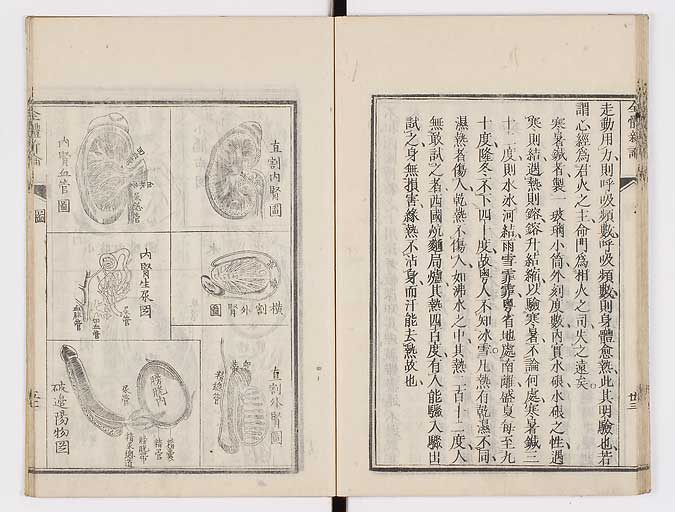 全體新論
走動用力則呼吸頻數呼吸頻數則身體愈熱此其明驗也若
謂心經爲君火之主命門爲相火之司失之遠矣
寒暑鍼者製一玻璃小筒外刻度數內實水銀水銀之性遇
寒則結遇熱則鎔鎔升結縮以驗寒暑不論何處寒暑鍼三
十二度則水冰河結雨雪霏霏粵省地處南離盛夏每至九
十度隆冬不下四十度故粵人不知冰雪凡熱有乾濕不同
濕熱者傷人乾熱不傷人如沸水之中其熱二百十二度人
無敢試之者西國炕麵局爐其熱四百度有人能驟入驟出
試之身無損害緣熱不沾身而汗能去熱故也
廿三
直割內腎圖
橫割外腎圖
直割外腎圖
內腎血管圖
內腎生尿圖
尿管
血管
膀胱
精囊
精管
破邊陽物圖
全體新論
圖